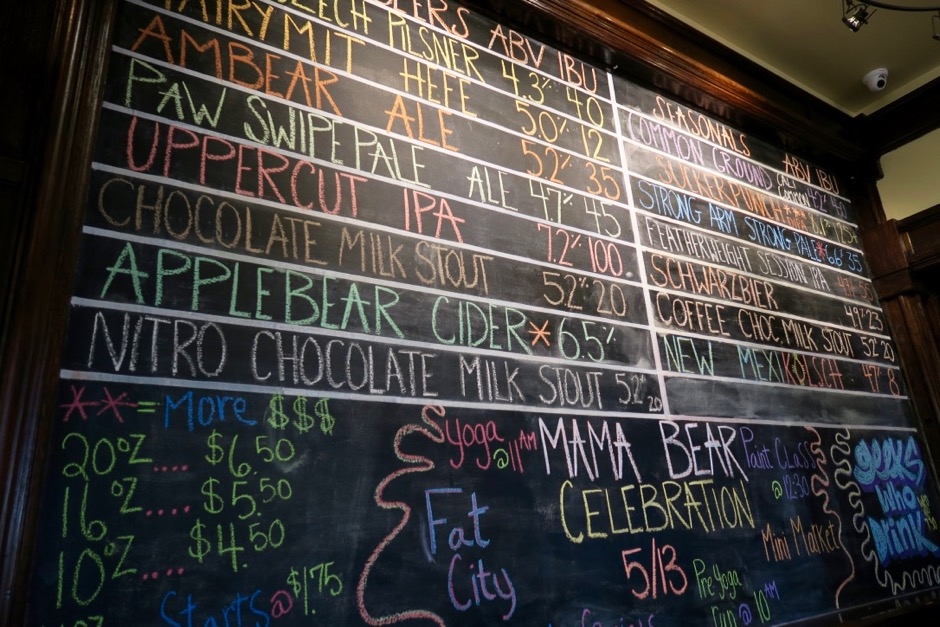 ABV IBU
CZECH PILSNER 4.3% 40
HEFE 5.0% 12
AMBEAR ALE 5.2% 35
PAW SWIPE PALE ALE 4.7% 45
UPPERCUT IPA 7.2% 100
CHOCOLATE MILK STOUT 5.2% 20
APPLEBEAR CIDER* 6.5%
NITRO CHOCOLATE MILK STOUT 5.2% 20
SEASONALS ABV IBU
COMMON GROUND
SUCKER PUNCH
STRONG ARM STRONG PALE* 6.6 35
FEATHERWEIGHT SESSION IPA
SCHWARZBIER 4.9% 25
COFFEE CHOC. MILK STOUT 5.2% 20
NEW MEXIKOLSCH 4.7% 8
** = More $$$
20oz..... $6.50
16oz..... $5.50
10oz..... $4.50
Starts @ $1.75
Yoga @ 11AM
Fat City
MAMA BEAR
CELEBRATION
5/13
Paint Class @ 12:30
Mini Market
Pre Yoga
@ 10AM
GEEKS
Who
DRINK